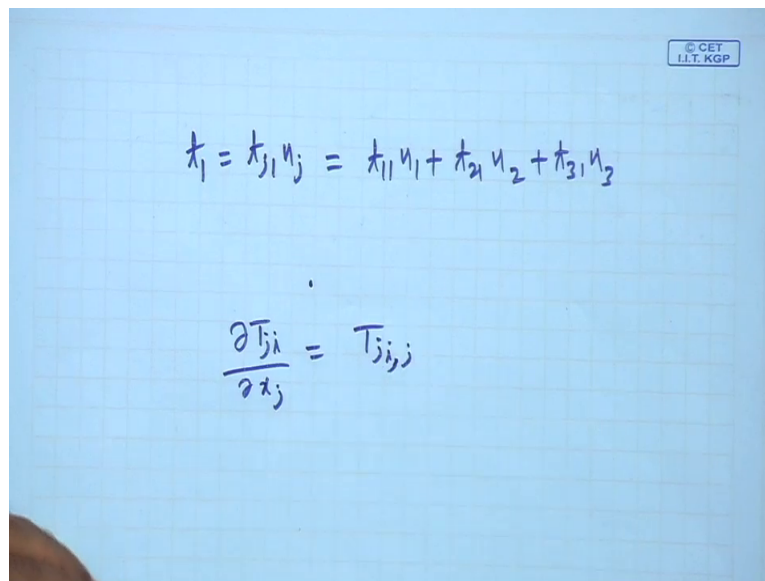 © CET
I.I.T. KGP
t₁ = tⱼ₁ nⱼ = t₁₁ n₁ + t₂₁ n₂ + t₃₁ n₃
∂Tji / ∂xj = Tji,j